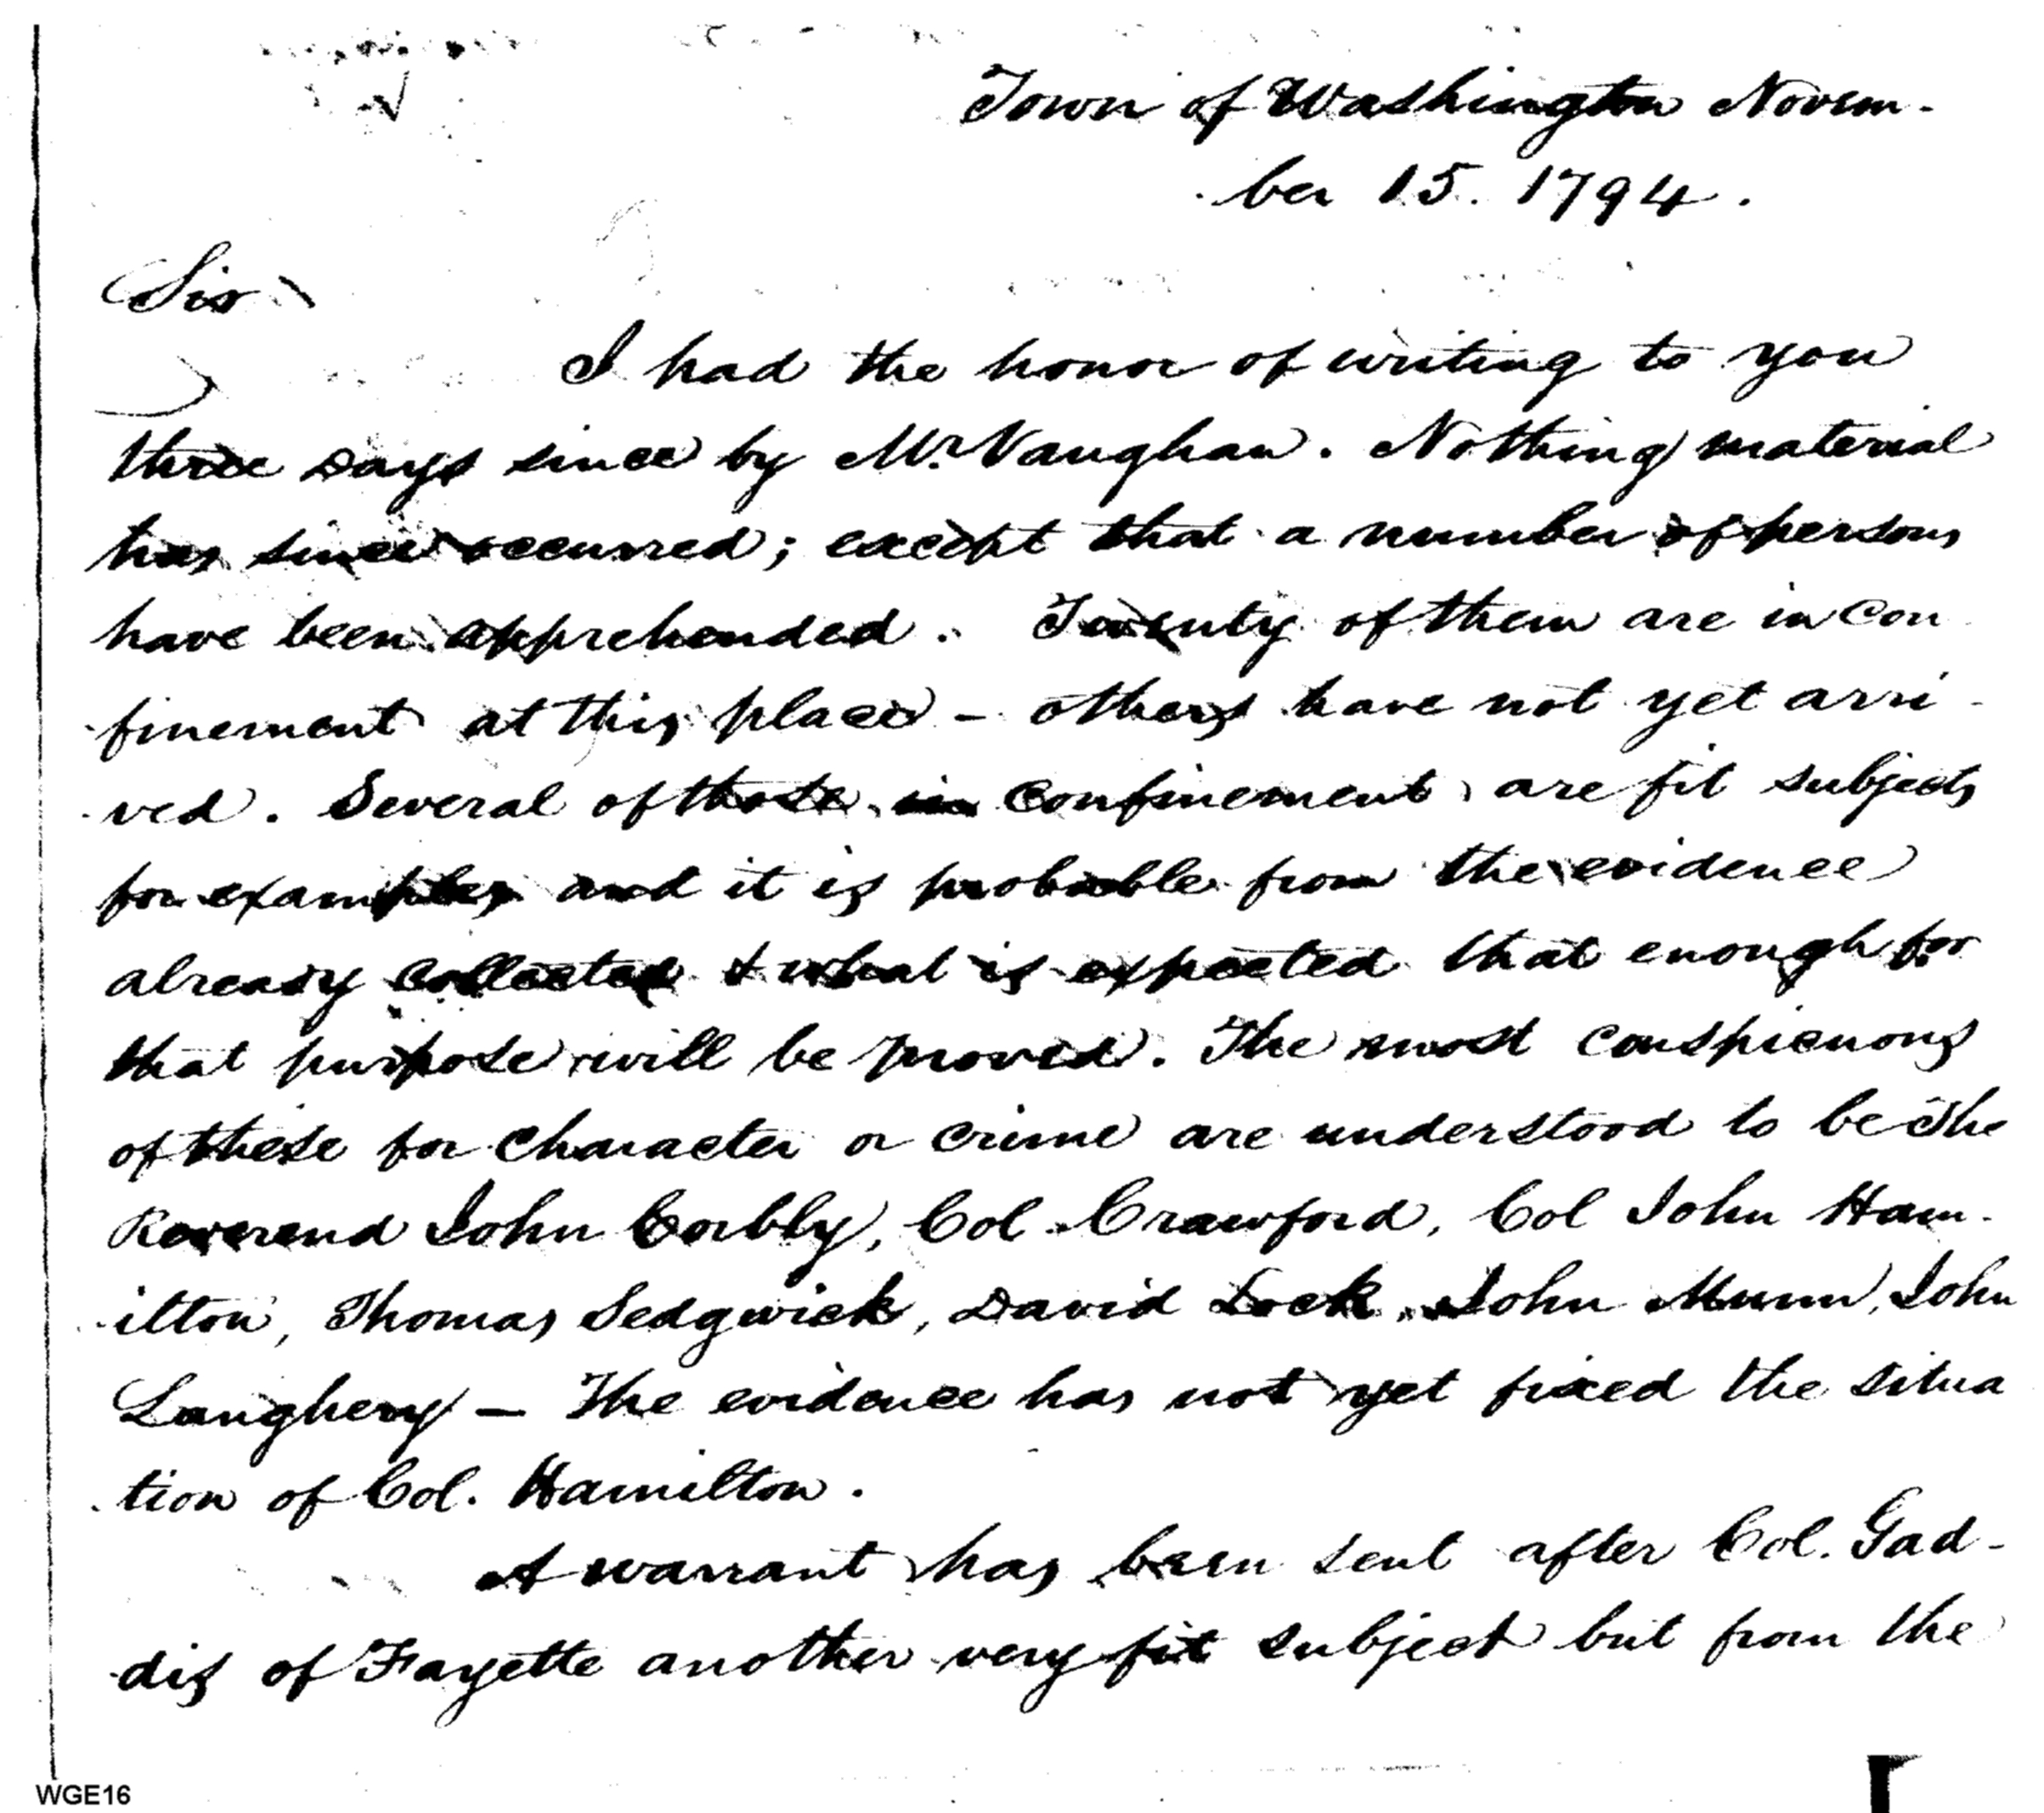 Town of Washington Novem-
ber 15. 1794.
Sir
I had the honor of writing to you
three Days since by Mr. Vaughan. Nothing material
has since occurred; except that a number of persons
have been apprehended. Twenty of them are in con
finement at this place - others have not yet arri-
ved. Several of those in confinement are fit subjects
for examples and it is probable from the evidence
already collected & what is expected that enough for
that purpose will be proved. The most conspicuous
of these for character or crime are understood to be The
Reverend John Corbly, Col. Crawford, Col John Ham-
ilton, Thomas Sedgwick, David Lock, John Munn, John
Laughery — The evidence has not yet fixed the situa
tion of Col. Hamilton.
A warrant has been sent after Col. Gad-
dis of Fayette another very fit subject but from the
WGE16